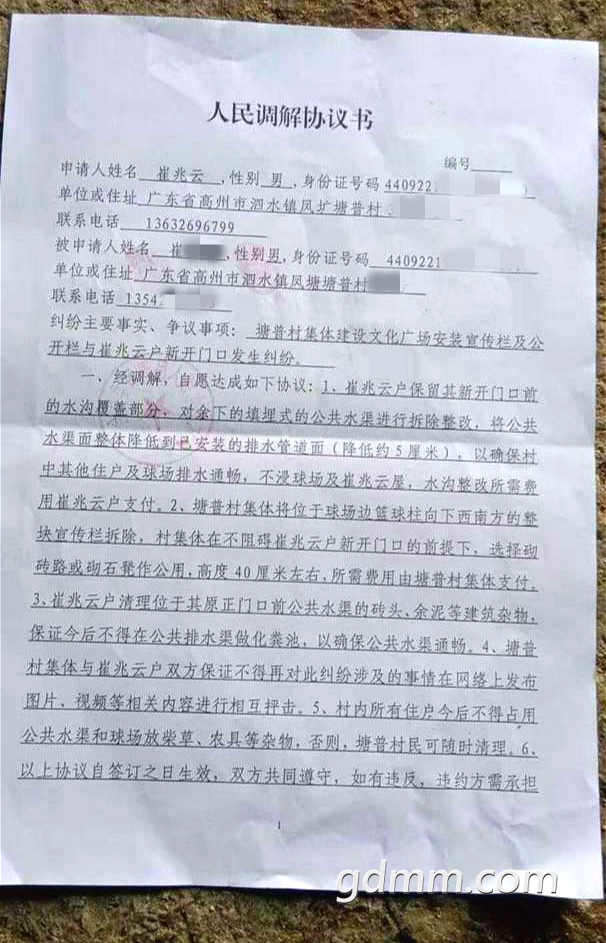 人民调解协议书
编号
申请人姓名 崔兆云 ,性别 男 ,身份证号码 4409221
单位或住址 广东省高州市泗水镇凤圹塘普村
联系电话 13632696799
被申请人姓名 崔 ,性别男,身份证号码 4409221
单位或住址 广东省高州市泗水镇凤塘塘普村
联系电话 13542
纠纷主要事实、争议事项：塘普村集体建设文化广场安装宣传栏及公
开栏与崔兆云户新开门口发生纠纷。
一、经调解，自愿达成如下协议：1、崔兆云户保留其新开门口前
的水沟覆盖部分，对余下的填埋式的公共水渠进行拆除整改，将公共
水渠面整体降低到已安装的排水管道面（降低约5厘米），以确保村
中其他住户及球场排水通畅，不浸球场及崔兆云屋，水沟整改所需费
用崔兆云户支付。2、塘普村集体将位于球场边篮球柱向下西南方的整
块宣传栏拆除，村集体在不阻碍崔兆云户新开门口的前提下，选择砌
砖路或砌石凳作公用，高度40厘米左右，所需费用由塘普村集体支付。
3、崔兆云户清理位于其原正门口前公共水渠的砖头、余泥等建筑杂物，
保证今后不得在公共排水渠做化粪池，以确保公共水渠通畅。4、塘普
村集体与崔兆云户双方保证不得再对此纠纷涉及的事情在网络上发布
图片、视频等相关内容进行相互抨击。5、村内所有住户今后不得占用
公共水渠和球场放柴草、农具等杂物，否则，塘普村民可随时清理。6、
以上协议自签订之日生效，双方共同遵守，如有违反，违约方需承担
1
gdmm.com